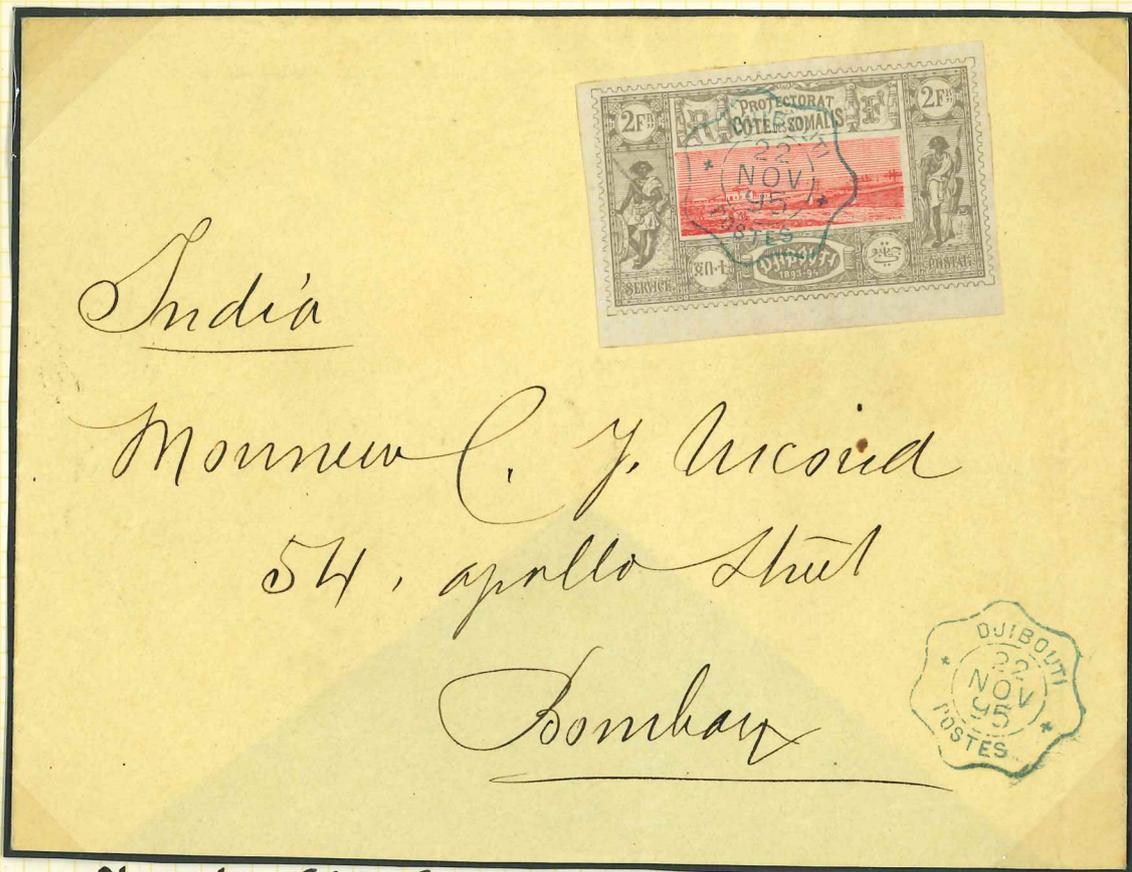 2FR 2FR
PROTECTORAT
R F
CÔTE DES SOMALIS
DJIBOUTI
22
NOV
95
POSTES
DJIBOUTI
1893-94
SERVICE POSTAL
India
Monsieur C. J. Nicoud
54, apollo Street
Bombay
DJIBOUTI
22
NOV
95
POSTES